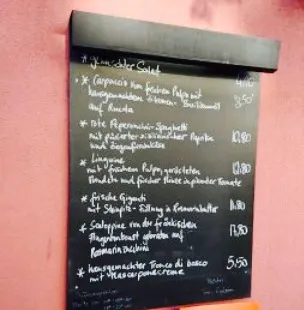 * gemischter Salat 4,10
* Carpaccio vom frischen Pulpo mit
hausgemachtem Zitronen-Basilikumöl
auf Rucola 9,50
* rote Peperoncini-Spaghetti
mit pikanter italienischer Paprika
und Ziegenfrischkäse 10,80
* Linguine
mit frischem Pulpo, gerösteten
Mandeln und frischer Minze in pikanter Tomate 12,80
* frische Giganti
mit Steinpilz-Füllung in Rosmarinbutter 11,80
* Scaloppine von der fränkischen
gebraten auf
Rosmarinzucchini 17,80
* hausgemachter Tronco di bosco
mit Mascarponecreme 5,50